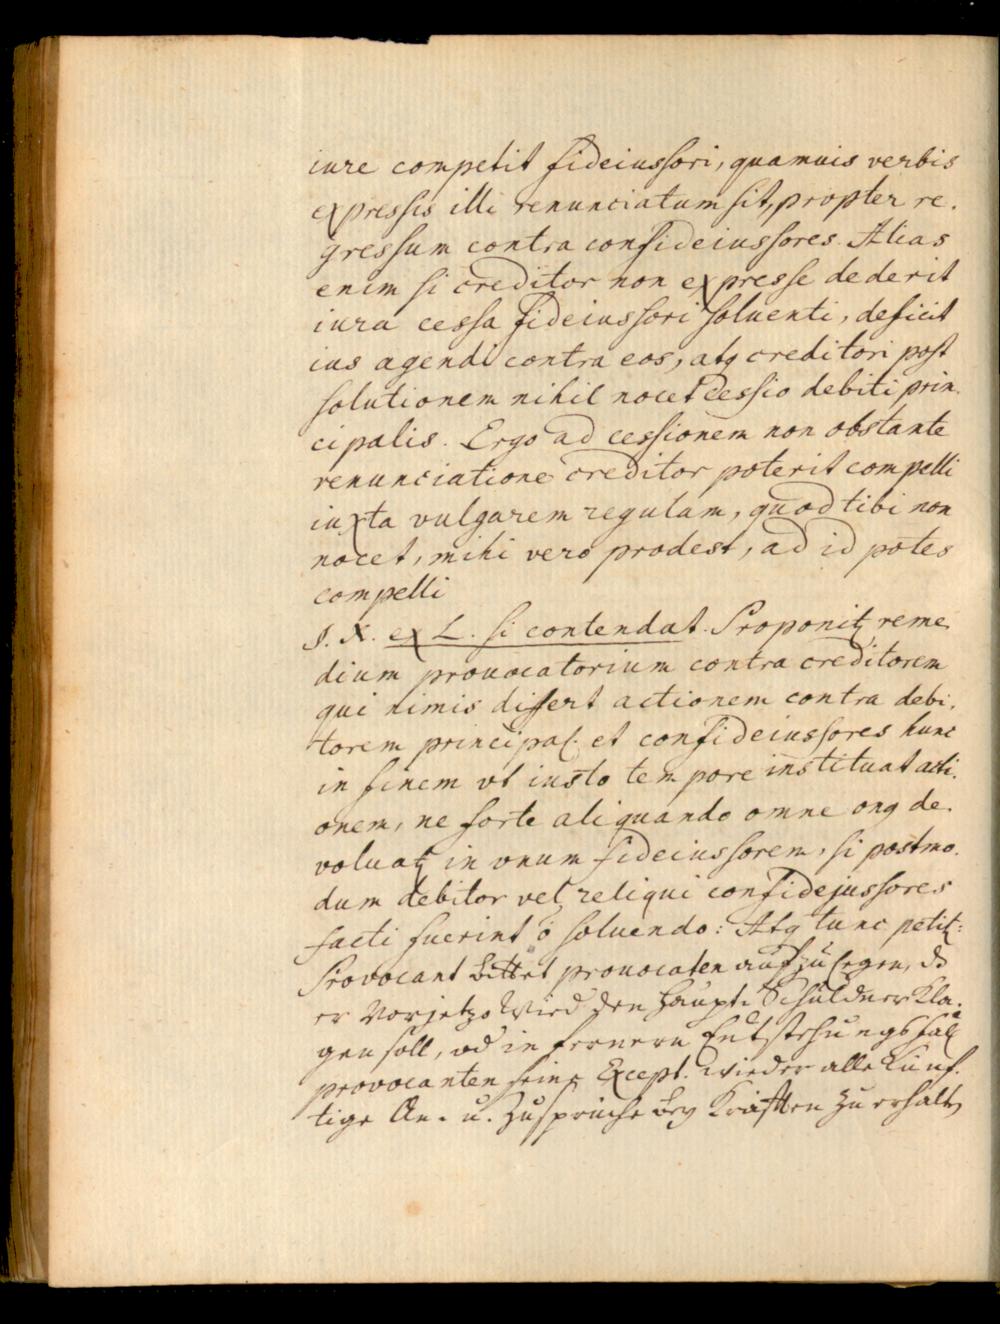 iure competit fideiussori, quamuis verbis
expressis illi renunciatum sit, propter re.
gressum contra confideiussores. Alias
enim si creditor non expresse dederit
iura cessa fideiussori soluenti, deficit
ius agendi contra eos, atq creditori post
solutionem nihil nocet cessio debiti prin.
cipalis. Ergo ad cessionem non obstante
renunciatione creditor poterit compelli
iuxta vulgarem regulam, quod tibi non
nocet, mihi vero prodest, ad id potes
compelli
§. X. ex L. si contendat. Proponitʒ reme.
dium prouocatorium contra creditorem
qui nimis differt actionem contra debi.
torem principal. et confideiussores hunc
in finem vt iusto tempore instituat acti.
onem, ne forte aliquando omne onq de.
voluatʒ in vnum fideiussorem, si postmo.
dum debitor vel reliqui confidejussores
facti fuerint ō soluendo: Atq tunc petitʒ:
Provocant bittet prouocaten aufzulegen, dß
er vorjetzo wied. den Haupt. Schuldner kla.
gen soll, od in fernern Entstehungs fall
provocanten seine Except. wieder alle künf.
tige An- u. Zusprüche bey Kräfften zu erhalt,